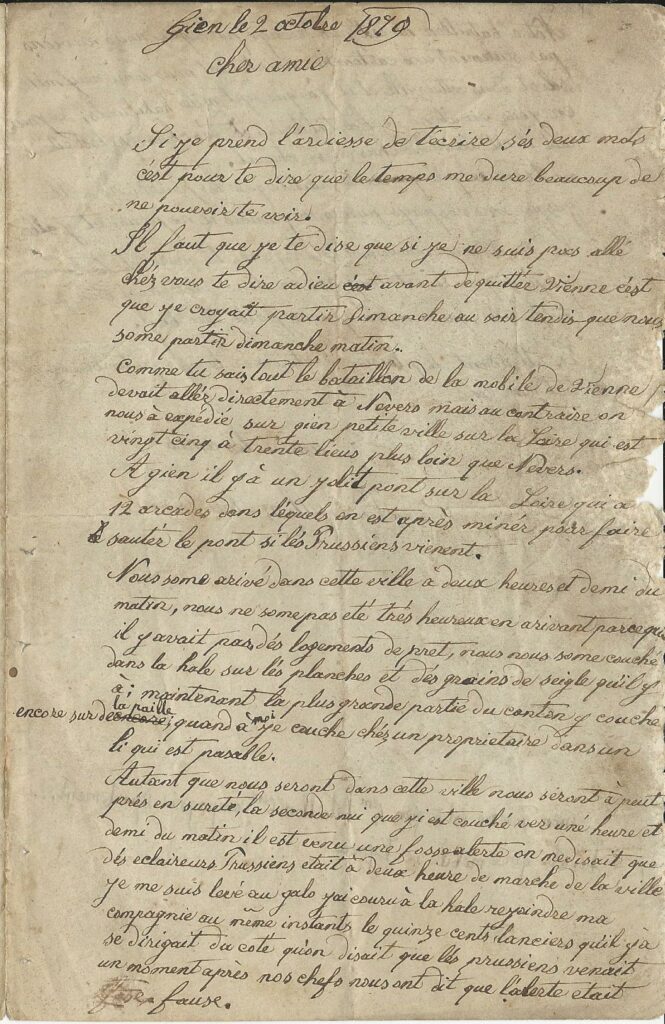 Gien le 2 octobre 1870
cher amie
Si je prend l'ardiesse de t'ecrire sés deux mots
c'est pour te dire que le temps me dure beaucoup de
ne pouvoir te voir.
Il faut que je te dise que si je ne suis pas allé
chéz vous te dire adieu c'est avant de quittée Vienne c'est
que je croyait partir Dimanche au soir tendis que nous
some partir dimanche matin.
Comme tu sais tout le bataillon de la mobile de Vienne
devait alléz directement à Nevers mais au contraire on
nous à expédié sur gien petite ville sur la Loire qui est
vingt cinq à trente lieus plus loin que Nevers.
A gien il y à un jolit pont sur la Loire qui a
12 arcades dans léquels on est après miner pour faire
sautér le pont si lés Prussiens vienent.
Nous some arivé dans cette ville à deux heures et demi du
matin, nous ne some pas été trés heureux en arivant parcequ
il y avait pas dés logements de pret, nous nous some couché
dans la hale sur lés planches et dés grains de seigle qu'il y
à; maintenant la plus grande partie du conten y couche
encore sur de la paille encore; quand à moi je couche chéz un propriétaire dans un
li qui est pasable.
Autant que nous seront dans cette ville nous seront à peut
près en sureté, la seconde nui que j'i est couché ver une heure et
demi du matin il est venu une fosse alerte on me disait que
dés eclaireurs Prussiens etait à deux heure de marche de la ville
je me suis levé au galo j'ai couru à la hale rejoindre ma
compagnie au même instants le quinze cents lanciers qu'il y à
se dirigait du coté qu'on disait que lés prussiens venait
un moment après nos chefs nous ont dit que l'alerte etait
fause.